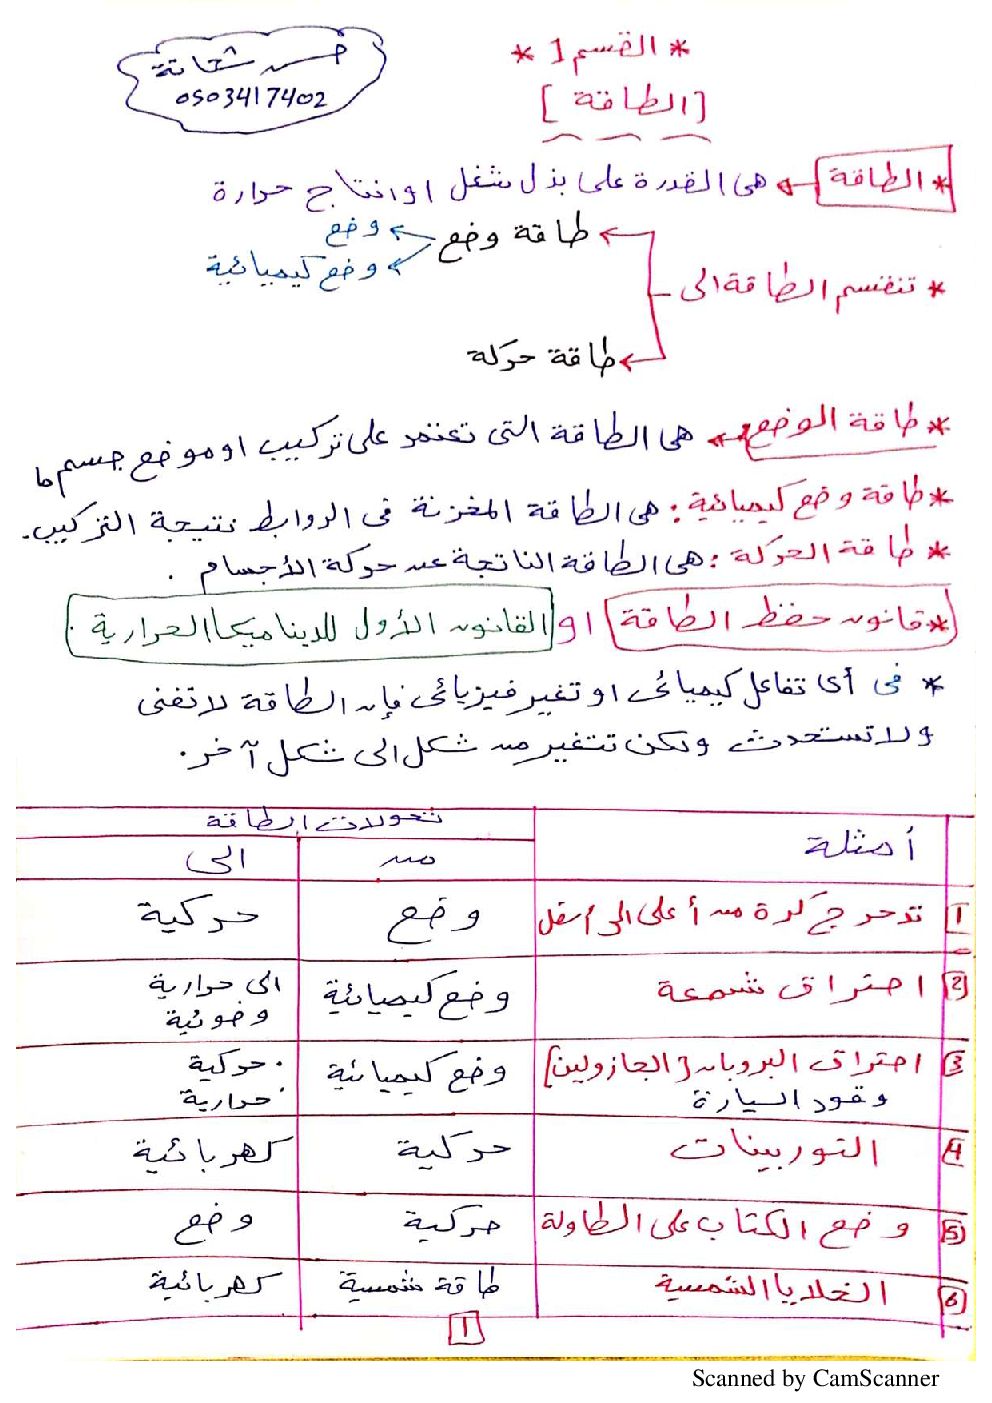 * القسم 1 *
[الطاقة]
حسن شحاتة
0503417402
* الطاقة ← هى القدرة على بذل شغل او انتاج حرارة
* تنقسم الطاقة الى
طاقة وضع
وضع
وضع كيميائية
طاقة حركة
* طاقة الوضع ← هى الطاقة التى تعتمد على تركيب او موضع جسم ما
* طاقة وضع كيميائية : هى الطاقة المخزنة فى الروابط نتيجة التركيب.
* طاقة الحركة : هى الطاقة الناتجة عن حركة الأجسام .
* قانون حفظ الطاقة او القانون الأول للديناميكا الحرارية .
* فى أى تفاعل كيميائى او تغير فيزيائى فإن الطاقة لا تفنى
ولا تستحدث ولكن تتغير من شكل الى شكل آخر .
أمثلة
تحولات الطاقة
من
الى
1 تدحرج كرة من أعلى الى اسفل
وضع
حركية
2 احتراق شمعة
وضع كيميائية
الى حرارية
وضوئية
3 احتراق البروبان [الجازولين]
وقود السيارة
وضع كيميائية
. حركية
. حرارية
4 التوربينات
حركية
كهربائية
5 وضع الكتاب على الطاولة
حركية
وضع
6 الخلايا الشمسية
طاقة شمسية
كهربائية
1
Scanned by CamScanner